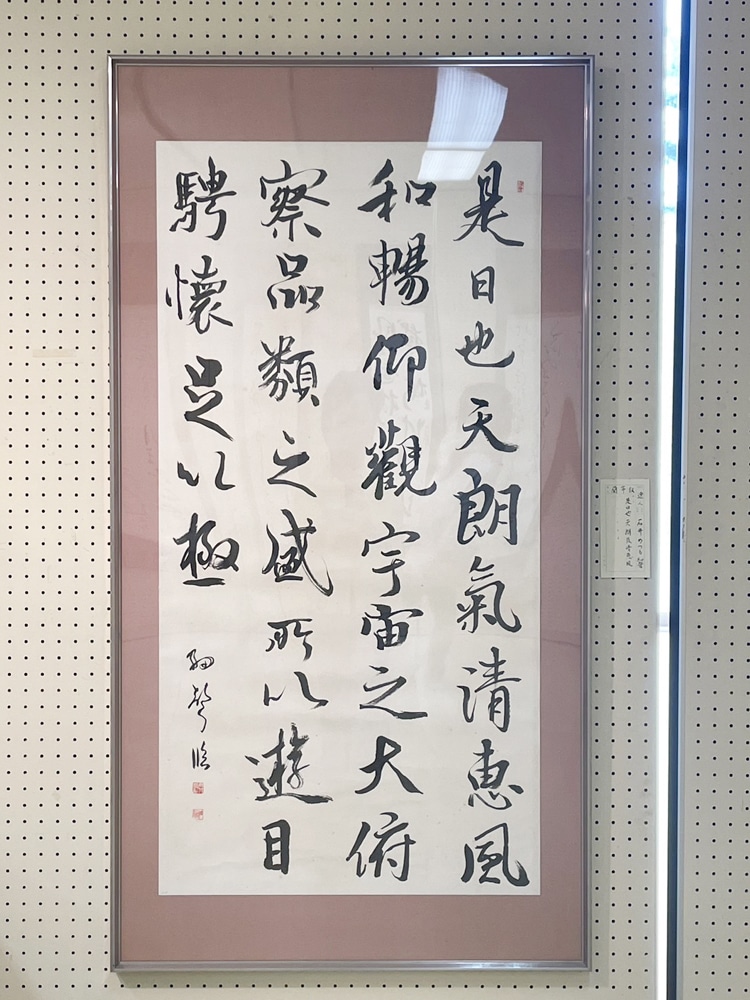 是日也天朗氣清惠風
和暢仰觀宇宙之大俯
察品類之盛所以遊目
騁懷足以極
臨